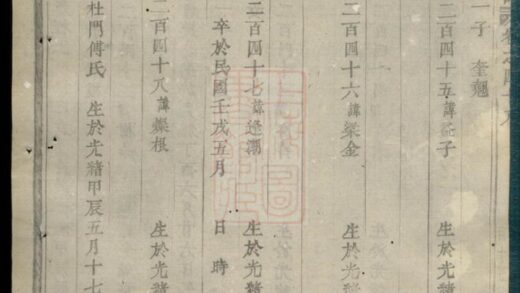 一子 奎魁
二百四十五諱益子 生於光緒
二百四十六諱梁金 生於光緒
二百四十七諱逢潮 生於光緒
卒於民國壬戌五月 日 時
二百四十八諱燦根 生於光緒
杜門傅氏 生於光緒甲辰五月十七